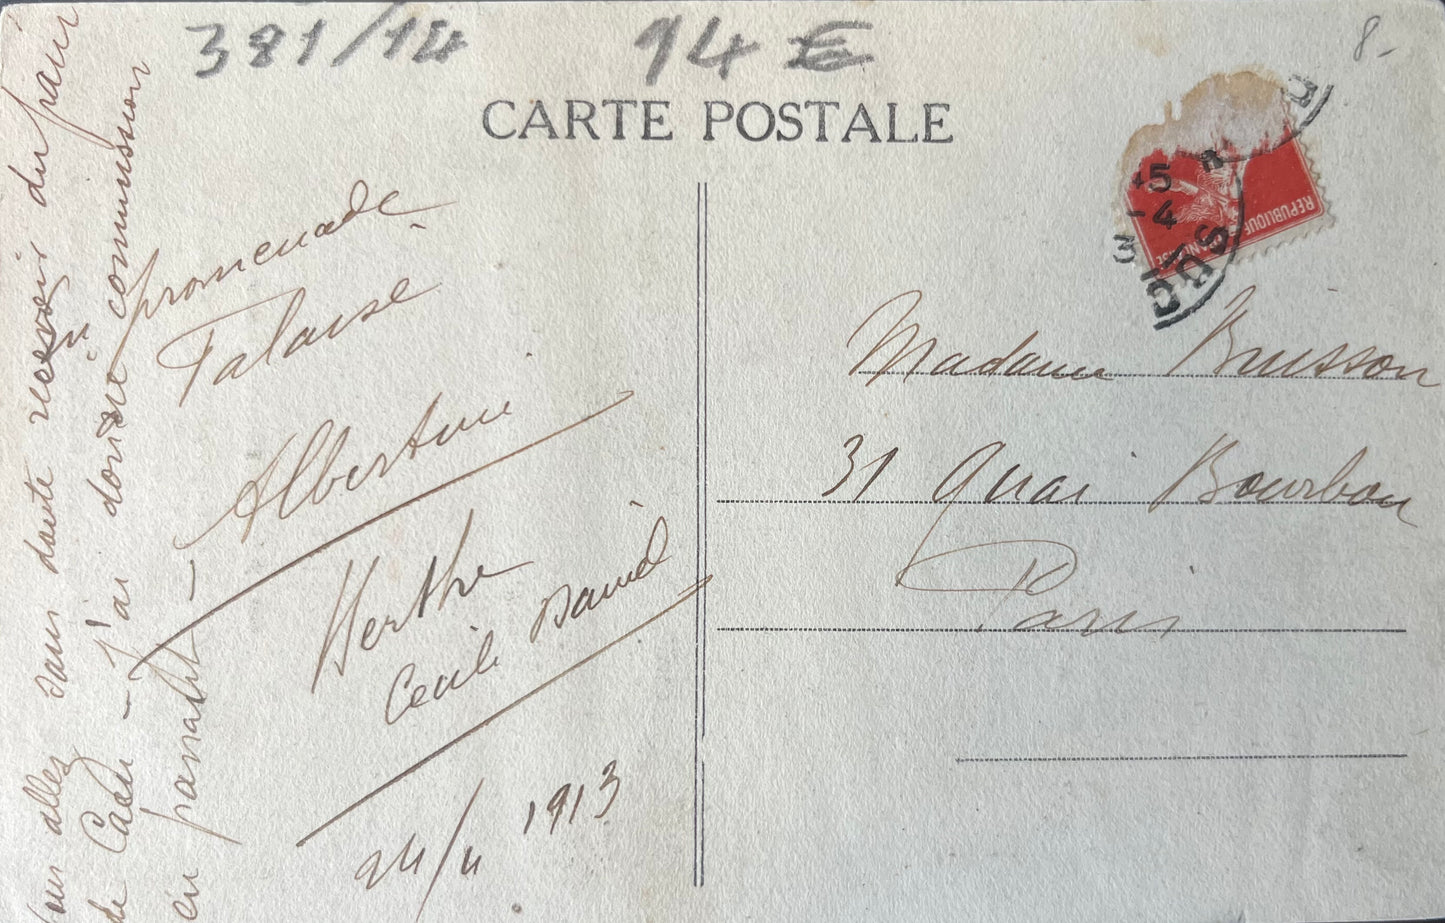 381/14
94 €
8-
CARTE POSTALE
REPUBLIQUE
FRANÇAISE
Vous allez sans doute recevoir du pain
de Caen - J'ai donné commission
en passant -
en promenade
Falaise
Albertine
Berthe
Cecile David
24/4 1913
Madame Buisson
31 Quai Bourbon
Paris